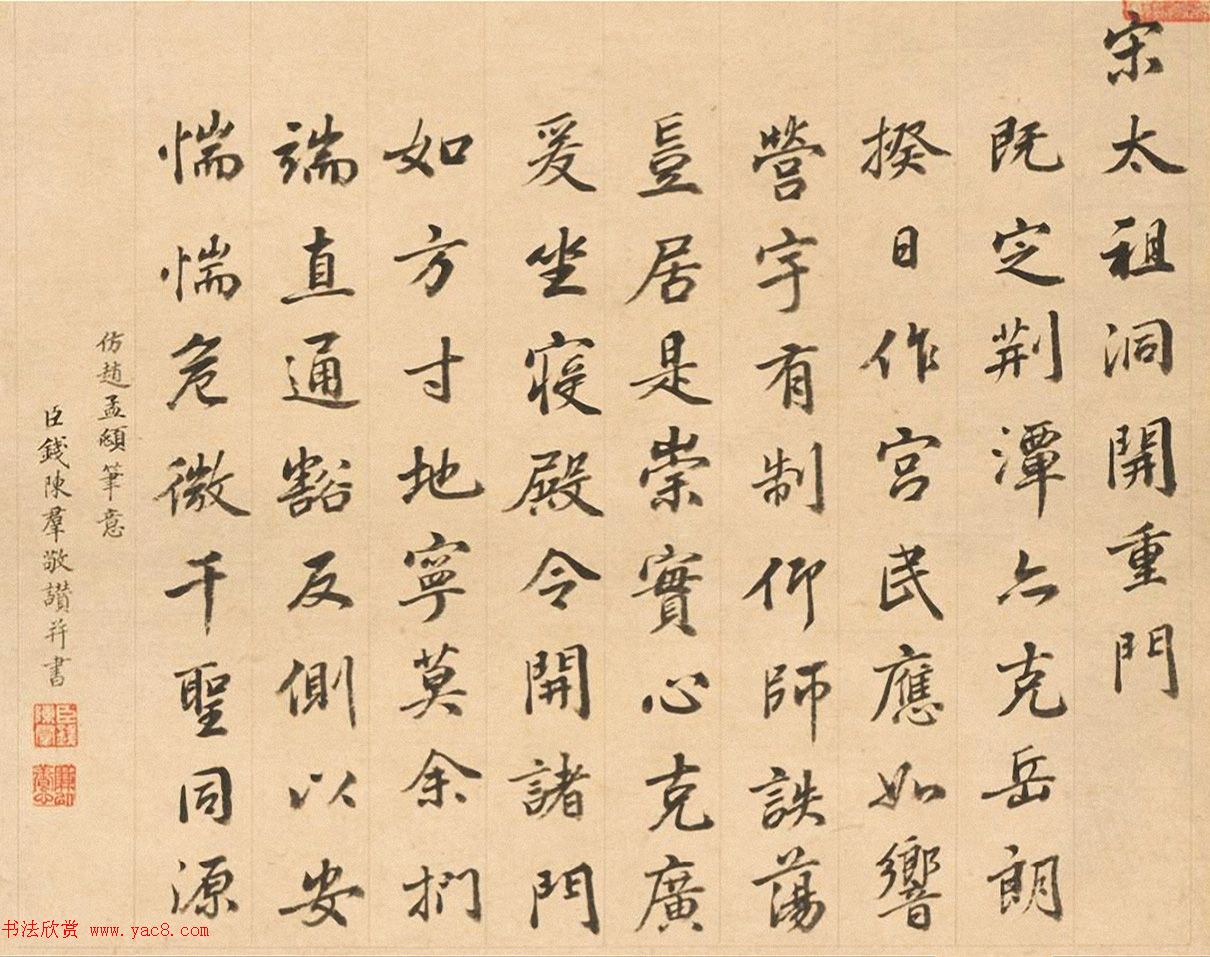 宋太祖洞開重門
既定荆潭亦克岳朗
揆日作宫民應如響
營宇有制仰師詄蕩
豈居是崇實心克廣
爰坐寝殿令開諸門
如方寸地寧莫余捫
端直通豁反側以安
惴惴危微千聖同源
仿趙孟頫筆意
臣錢陳羣敬讃并書
书法欣赏 www.yac8.com